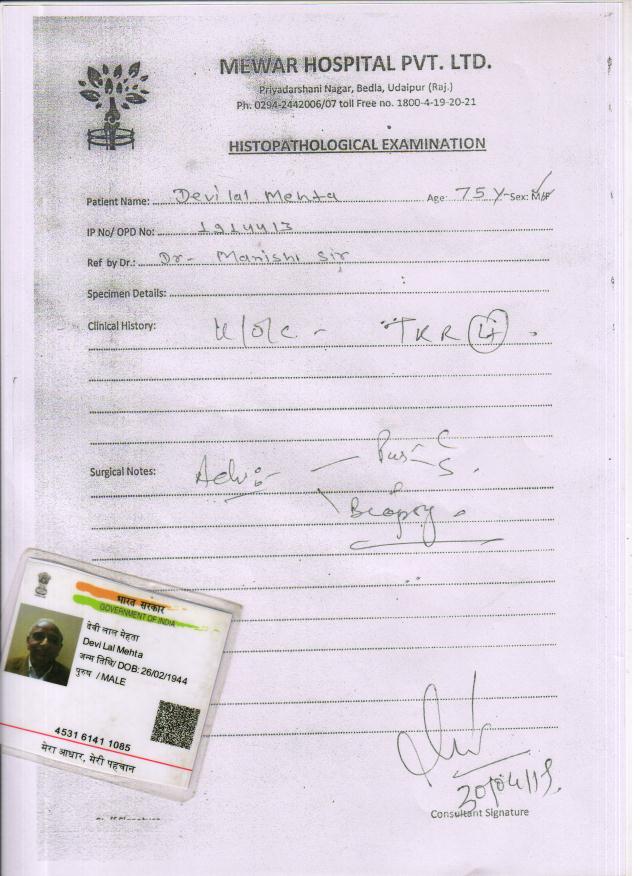 MEWAR HOSPITAL PVT. LTD.
Priyadarshani Nagar, Bedla, Udaipur (Raj.)
Ph: 0294-2442006/07 toll Free no. 1800-4-19-20-21
HISTOPATHOLOGICAL EXAMINATION
Patient Name: Devi lal Mehta Age: 75 Y Sex: M/F
IP No/ OPD No: 1914413
Ref by Dr.: Dr- Manish Sir
Specimen Details:
Clinical History: K/o/c - TKR
Surgical Notes: Adv:- Pus - C
S
Biopsy
भारत सरकार
GOVERNMENT OF INDIA
देवी लाल मेहता
Devi Lal Mehta
जन्म तिथि/ DOB: 26/02/1944
पुरुष / MALE
4531 6141 1085
मेरा आधार, मेरी पहचान
30/04/19.
Consultant Signature